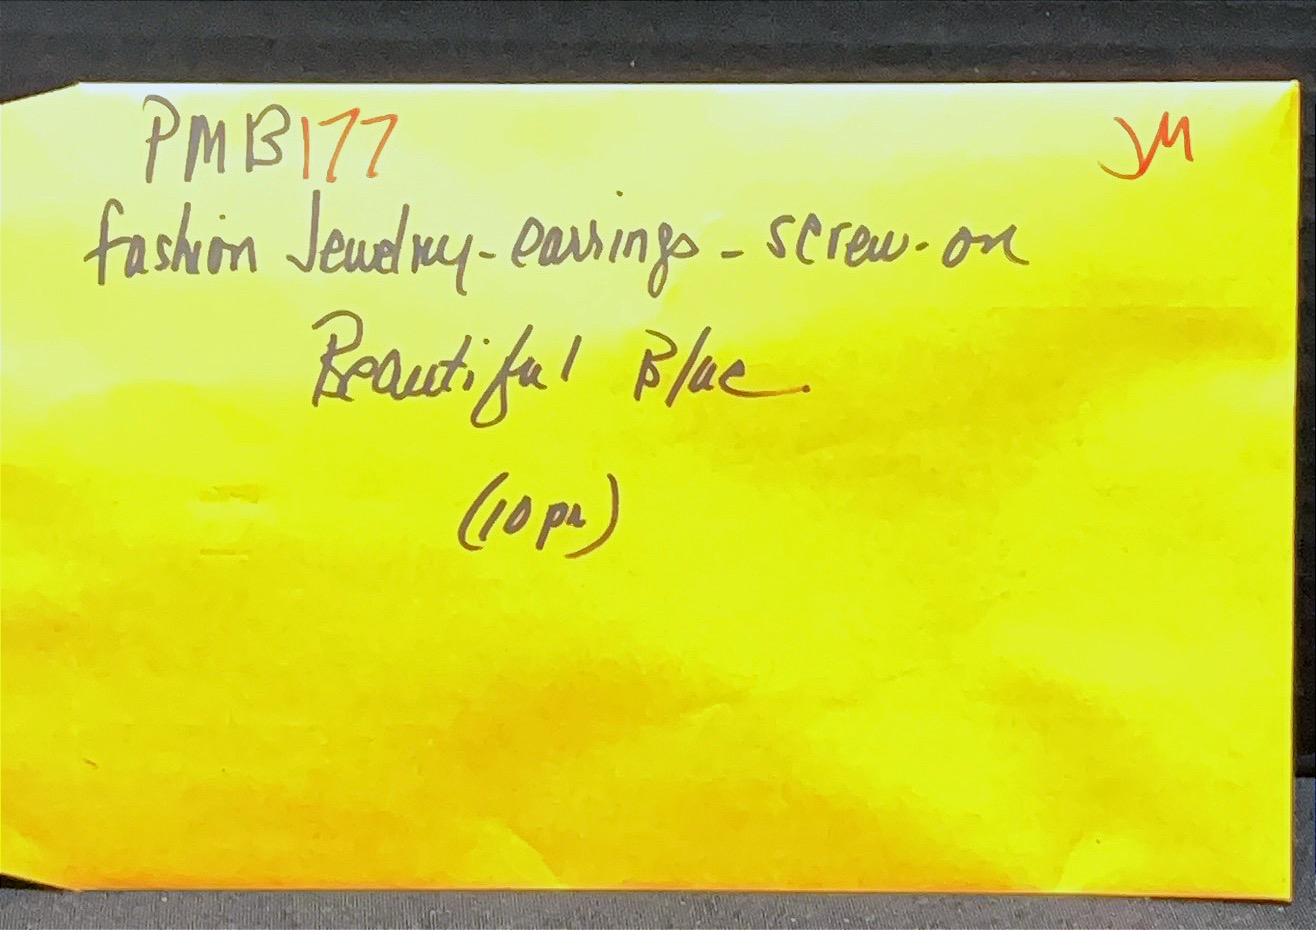 PMB177 JM
fashion Jewelry-earrings-screw-on
Beautiful Blue.
(10pr)